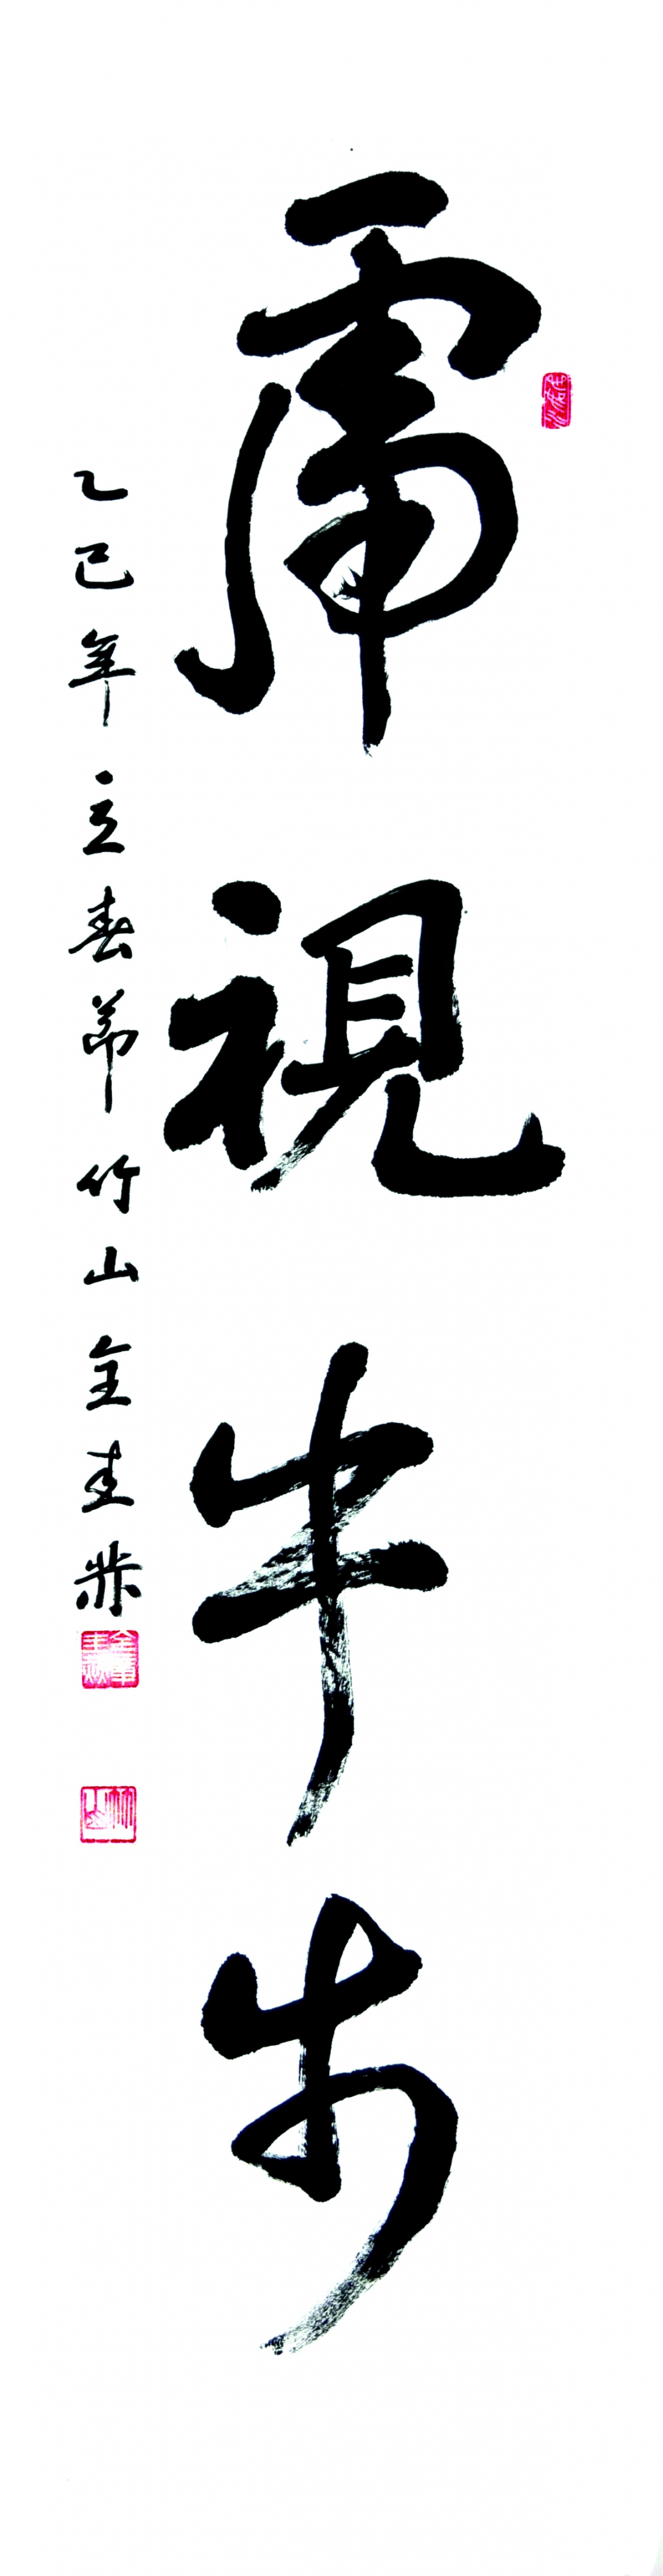 虎視牛步
乙巳年立春節竹山金圭